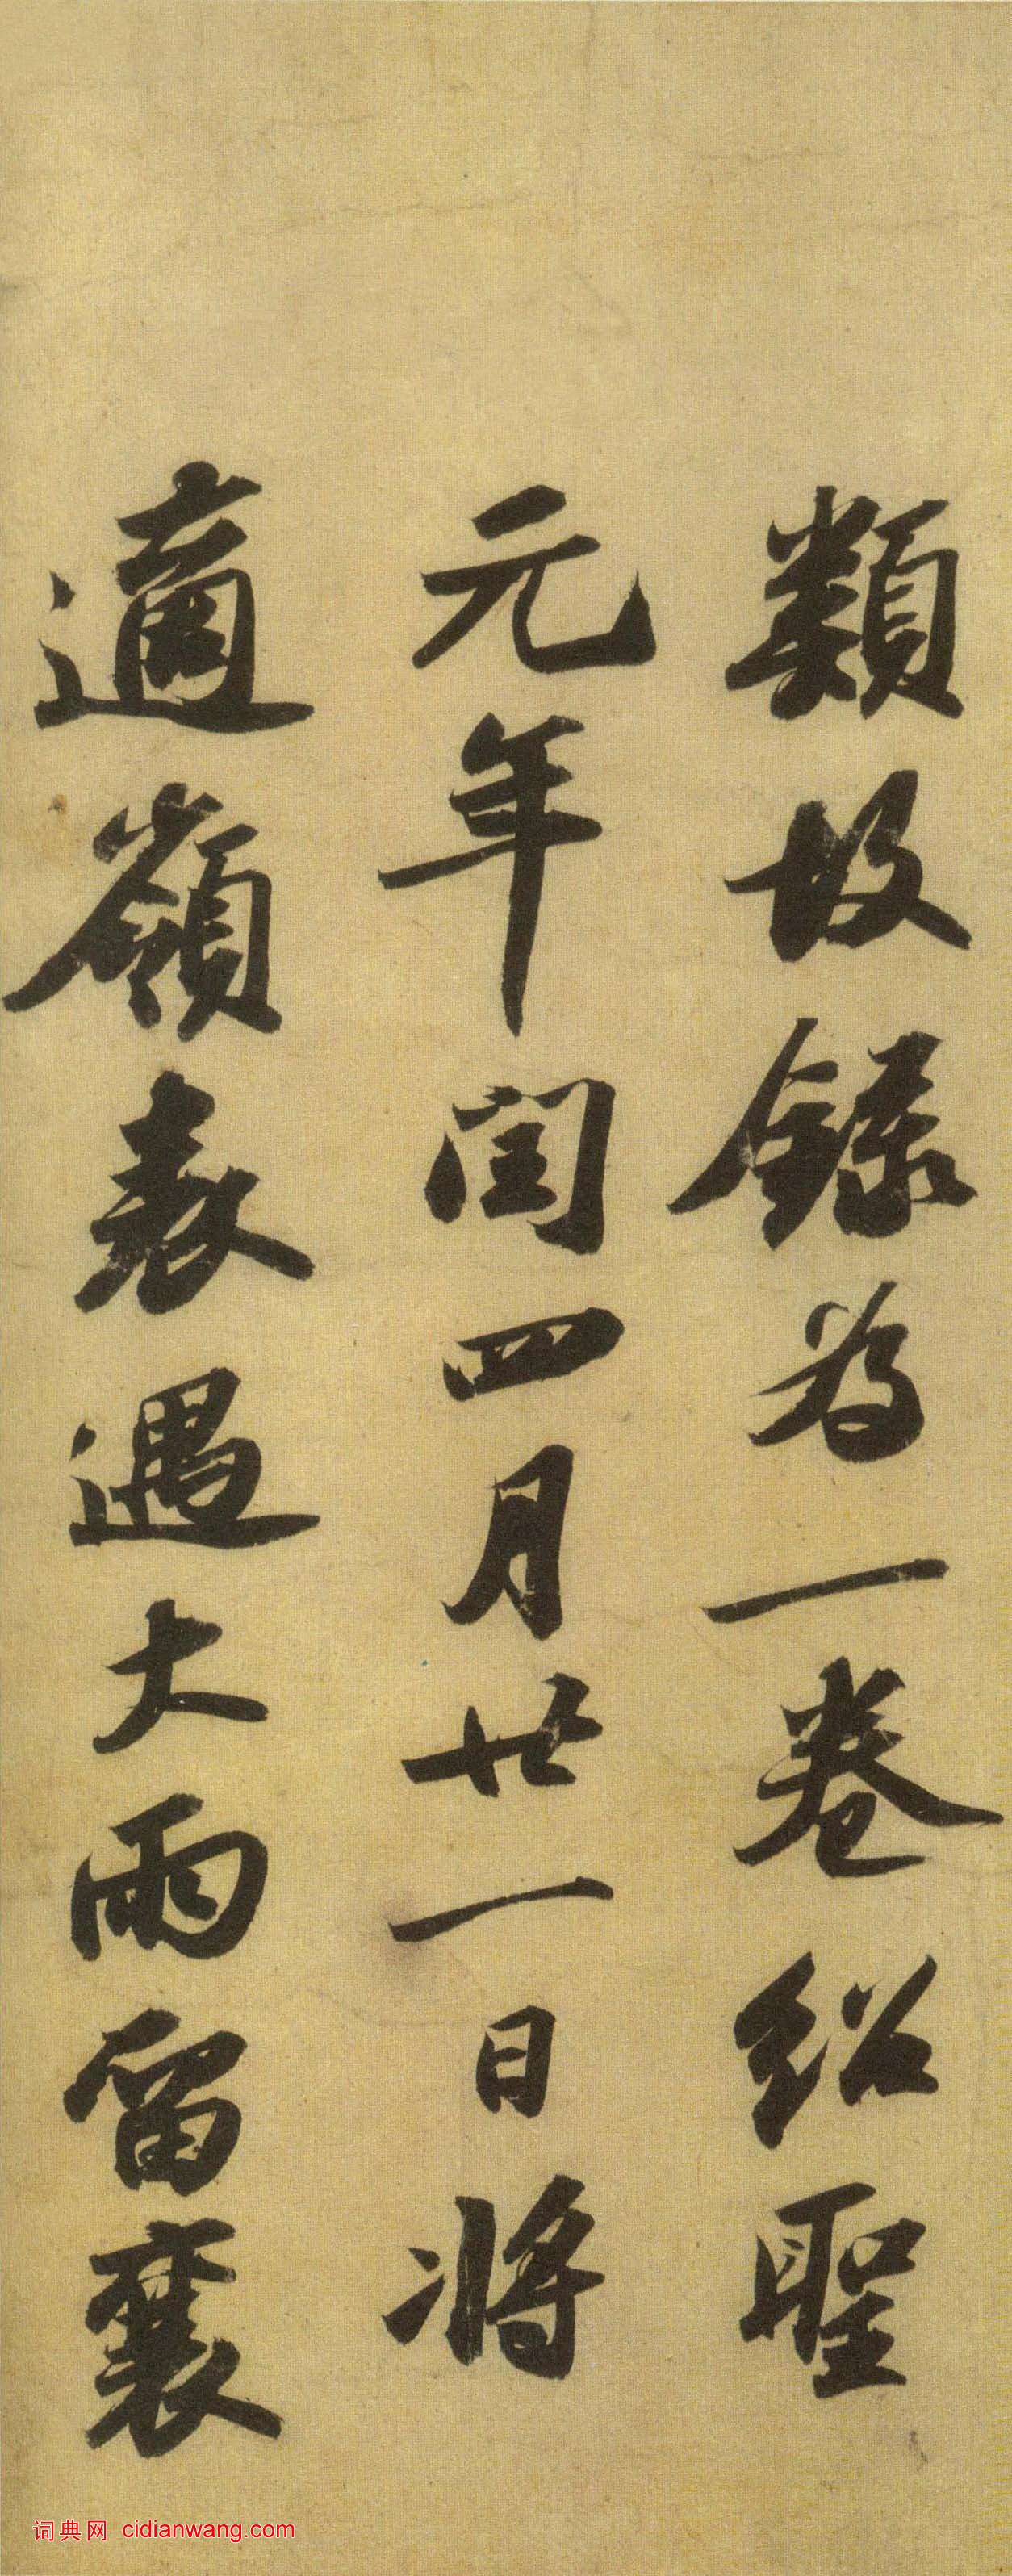 類故錄為一卷紹聖
元年閏四月廿一日將
適嶺表遇大雨留襄
词典网 cidianwang.com